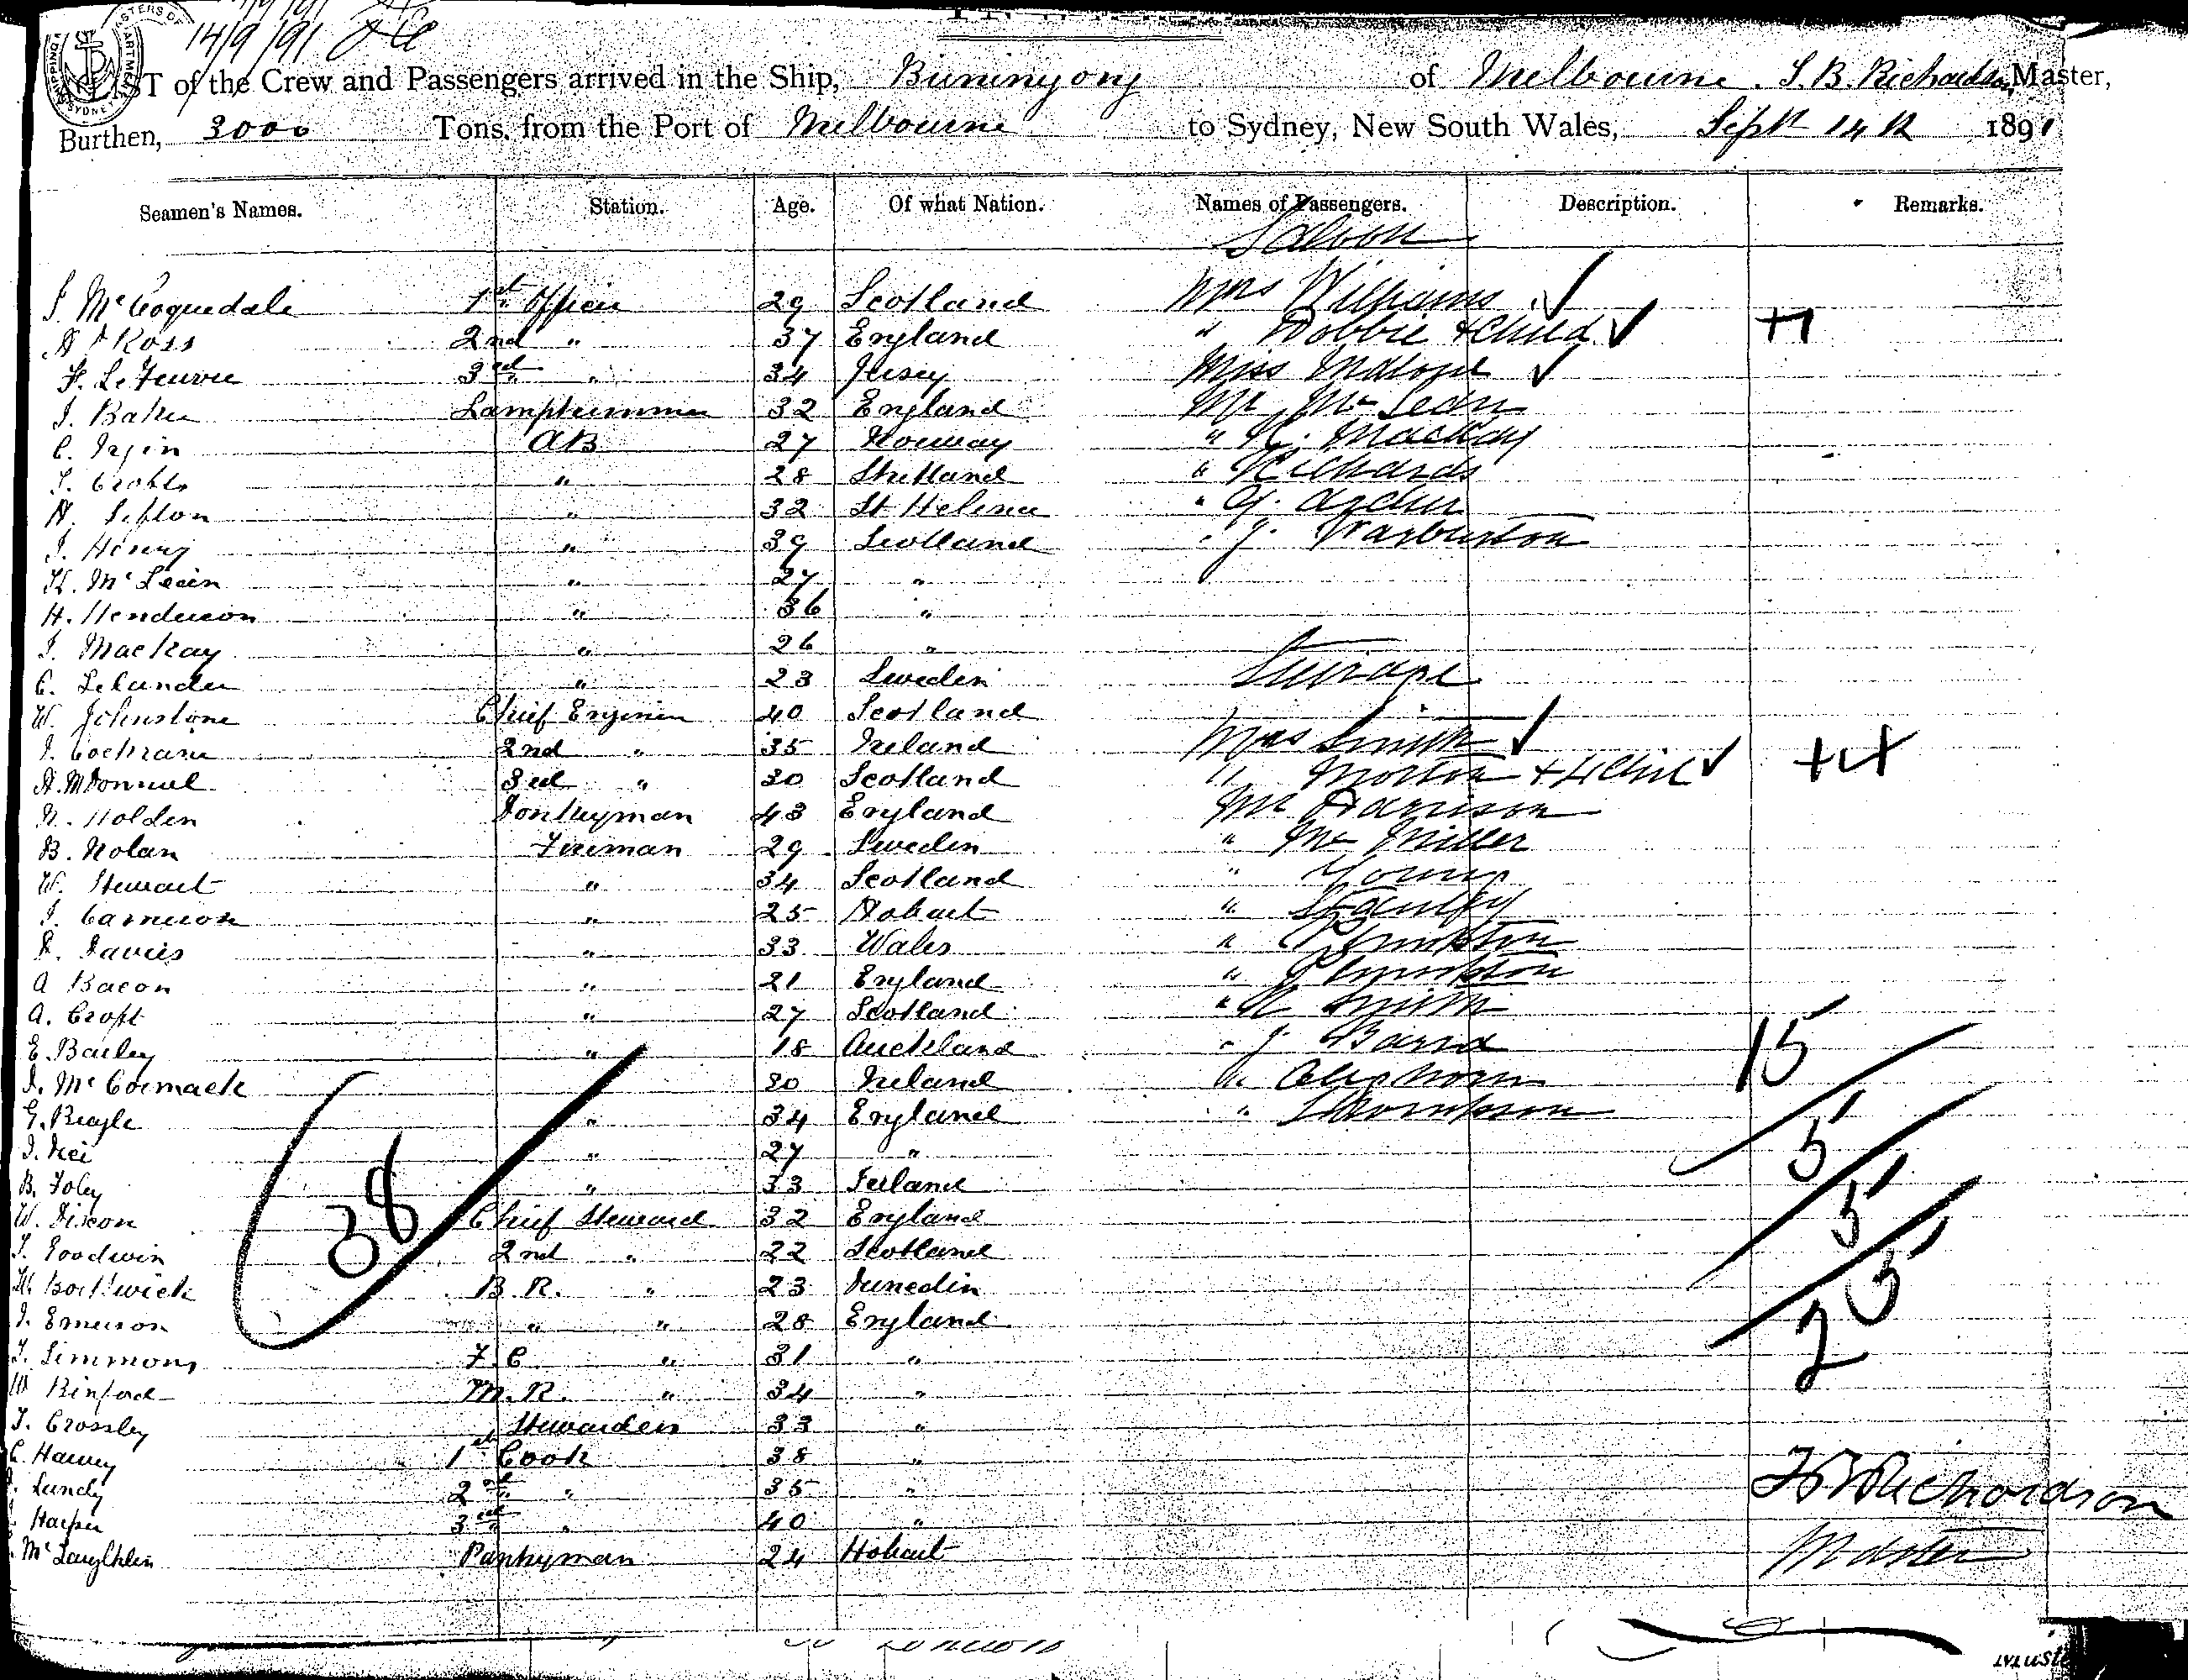 14/9/91
LIST of the Crew and Passengers arrived in the Ship, Buninyong of Melbourne. S. B. Richardson, Master,
Burthen, 3000 Tons, from the Port of Melbourne to Sydney, New South Wales, Sept 14th 1891
Seamen's Names. Station. Age. Of what Nation. Names of Passengers. Description. Remarks.
Saloon
J. McCoquedale 1st Officer 29 Scotland Mrs Williams ✓
Ross 2nd " 37 England " Dobbie + Child ✓ + 1
F. LeFeuvre 3rd " 34 Jersey Miss Malone ✓
J. Baker Lamptrimmer 32 England Mr McLean
C. Irgin AB 27 Norway " Mackay
J. " 28 Shetland " Richards
H. Sefton " 32 St Helena " G. Archer
J. Henry " 39 Scotland " J. Warburton
H. McLean " 27 "
H. Henderson " 36 "
J. MacKay " 26 "
C. Selander " 23 Sweden Steerage
W. Johnstone Chief Engineer 40 Scotland
J. Cochrane 2nd " 35 Ireland Mrs Smith ✓
A. McDonnel 3rd " 30 Scotland " Morton + 4 Chil ✓ + 4
N. Holden Donkeyman 43 England Mr Harrison
B. Nolan Fireman 29 Sweden " McMiller
W. Stewart " 34 Scotland " Young
J. Carneron " 25 Hobart " Stanley
D. Davies " 33 Wales "
A Bacon " 21 England "
A. Croft " 27 Scotland " Smith
E. Bailey " 18 Auckland " J. Baird 15
J. McCormack 30 Ireland " Cleghorn
G. Beagle " 34 England " Thompson
J. " 27 " 5
B. Foley " 33 Ireland
38
W. Dixon Chief Steward 32 England 5
T. Goodwin 2nd " 22 Scotland
Borthwick B. R. " 23 Dunedin
J. Emerson " " 28 England
T. Simmons F. C " 31 "
25
W Binford M. R. " 34 "
T. Crossley Stewardess 33 "
C. Harvey 1st Cook 38 "
Lundy 2nd " 35 " Richardson
Harper 3rd " 40 "
McLaughlin Pantryman 24 Hobart Master